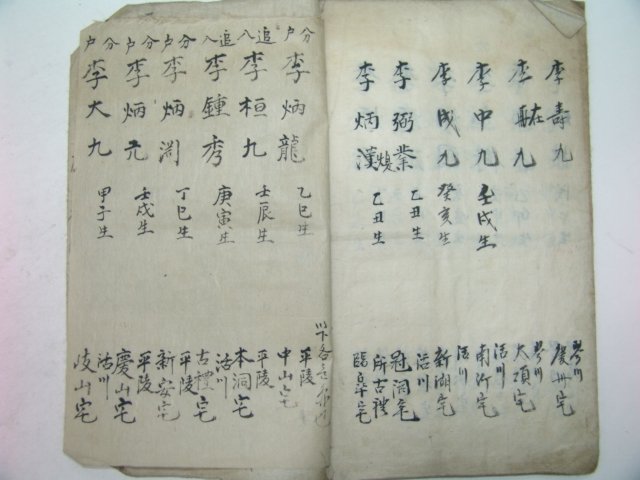 李壽九
琴川
慶州宅
李在九
琴川
大項宅
李中九
壬戌生
活川
南沂宅
李成九
癸亥生
活川
新湖宅
李弼業
乙丑生
活川
冠洞宅
李炳漢
乙丑生
所古禮
臨皐宅
分戶
李炳龍
乙巳生
平陵
中山宅
追入
李桓九
壬辰生
平陵
本洞宅
追入
李鍾秀
庚寅生
活川
古禮宅
分戶
李炳淵
丁巳生
平陵
新安宅
分戶
李炳元
壬戌生
平陵
慶山宅
分戶
李大九
甲子生
活川
岐山宅